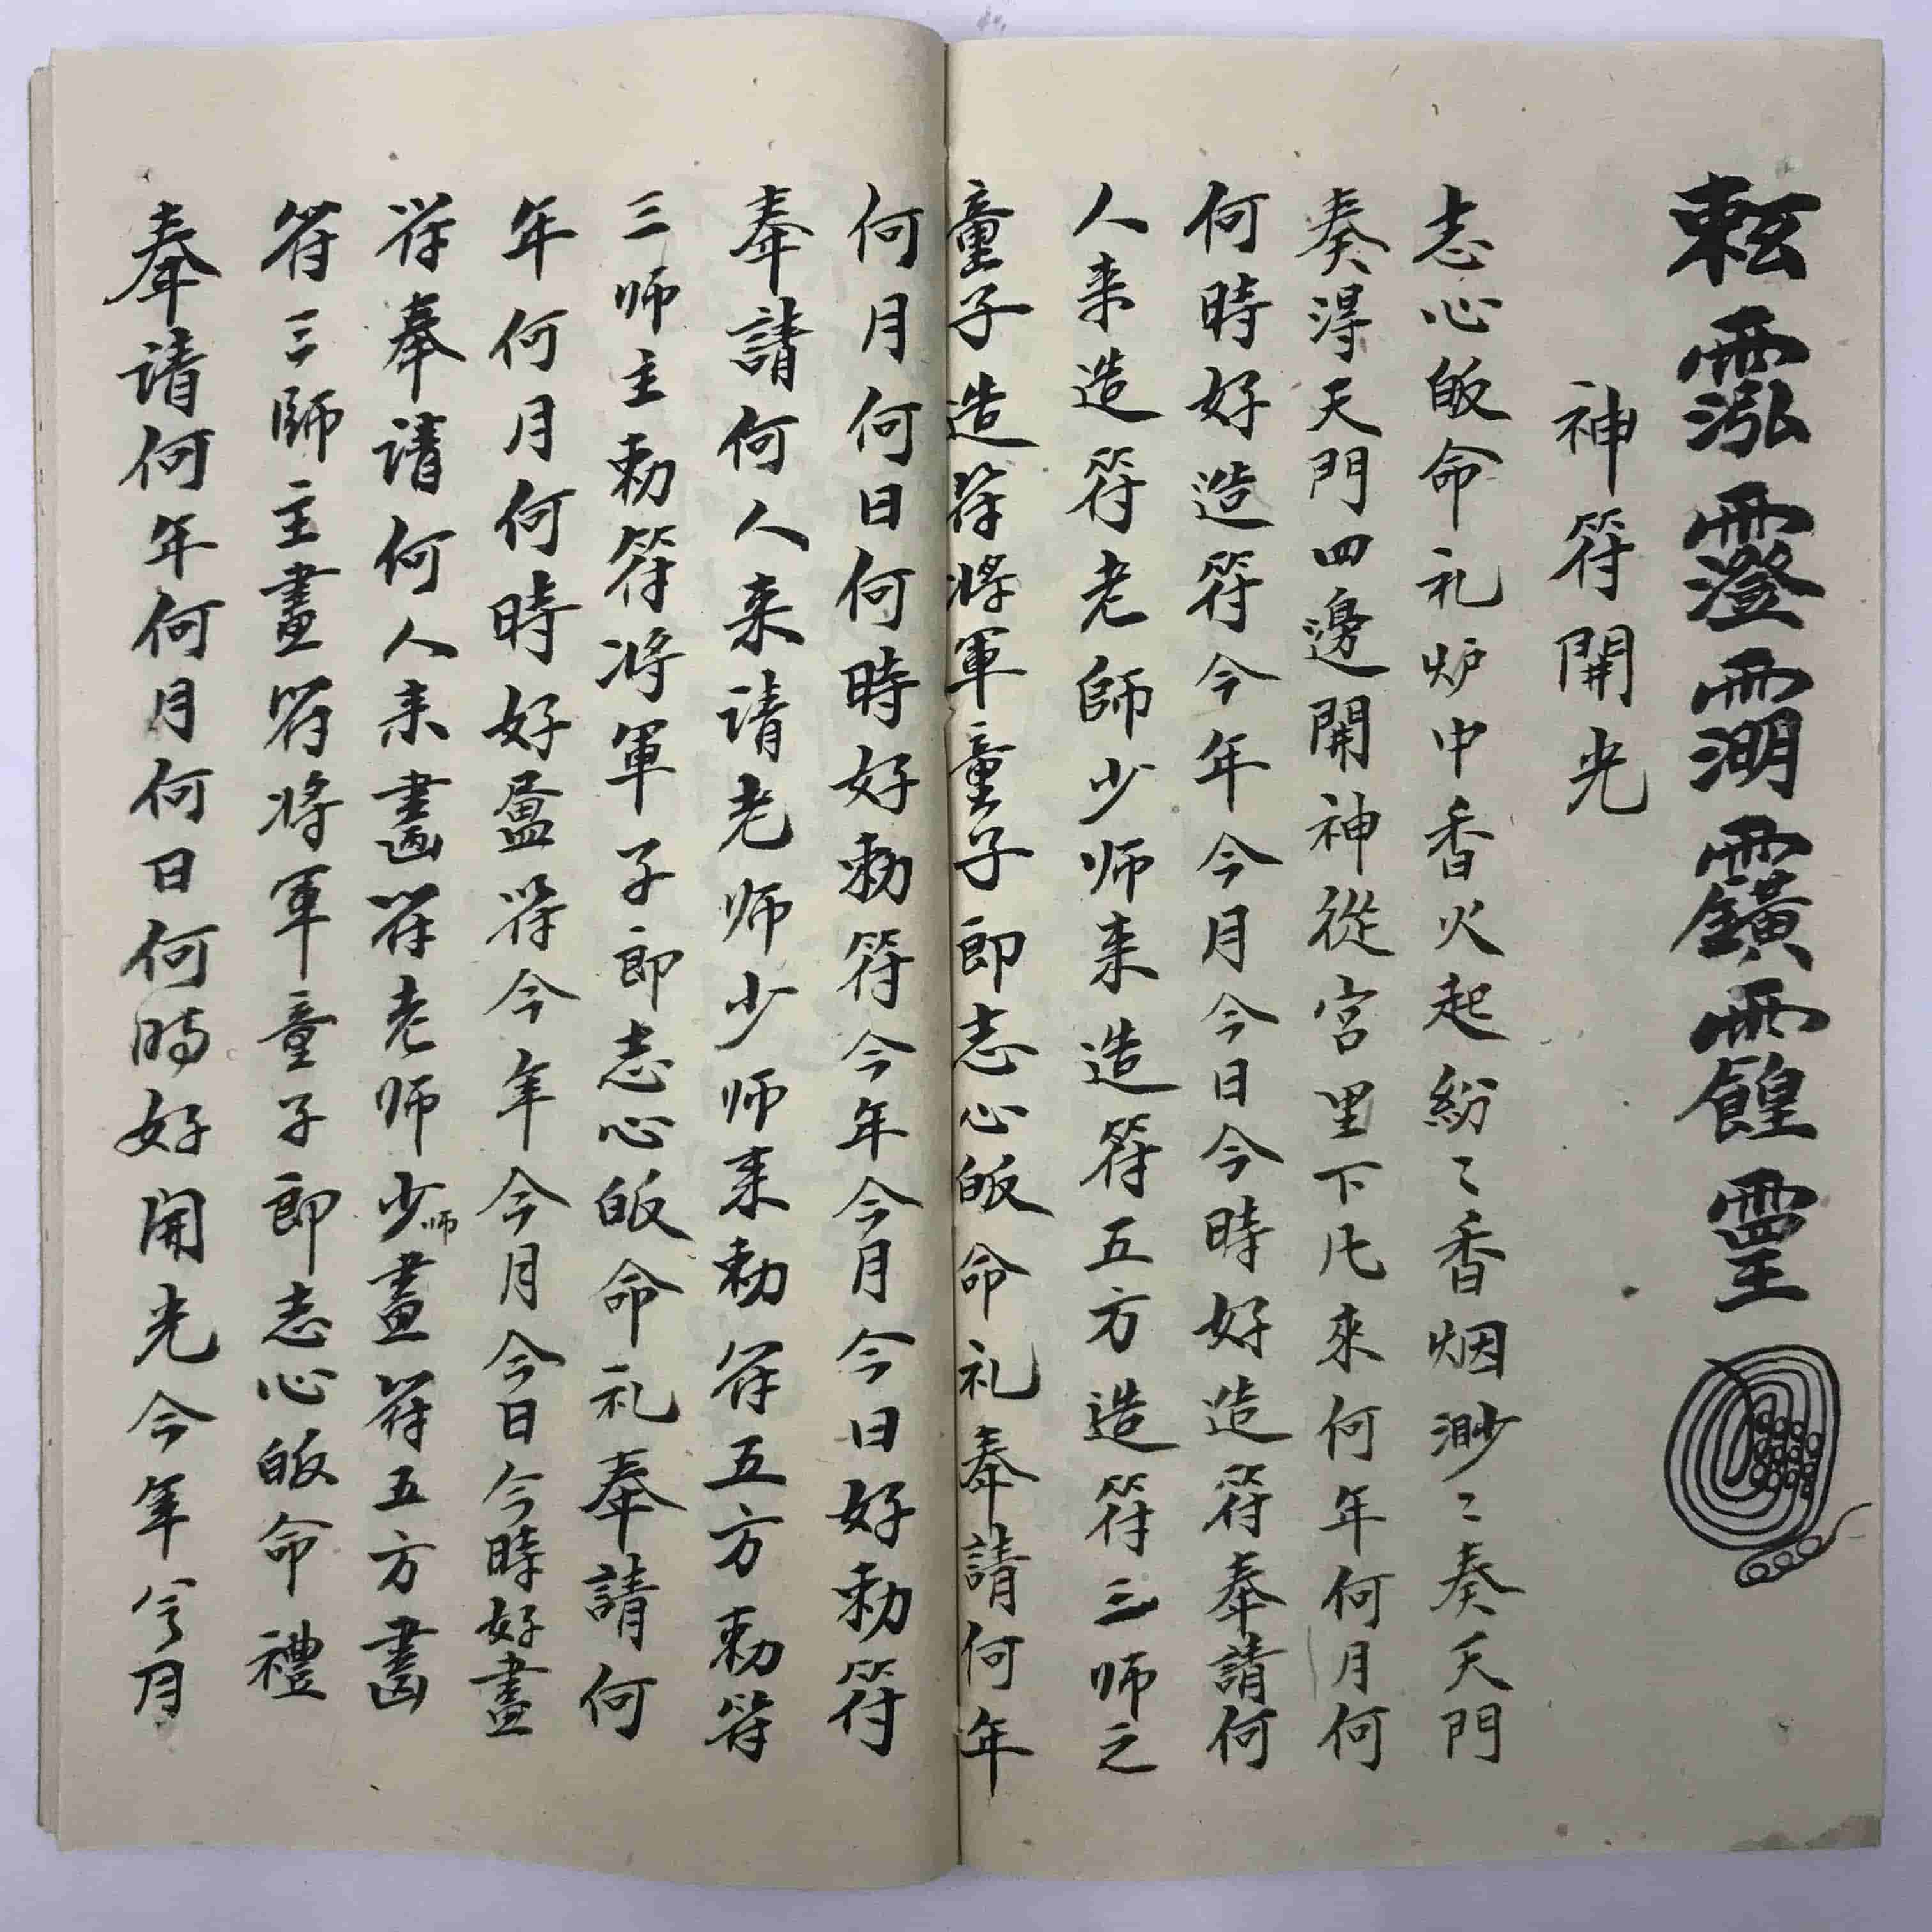 神符開光
志心皈命礼炉中香火起紛〻香烟渺〻奏天門
奏得天門四邊開神從宮里下凡來何年何月何
何時好造符今年今月今日今時好造符奉請何
人来造符老師少师来造符五方造符三师之
童子造符将軍童子郎志心皈命礼奉請何年
何月何日何時好勅符今年今月今日好勅符
奉請何人来请老师少师来勅符五方勅符
三师主勅符将軍子郎志心皈命礼奉請何
年何月何時好畫符今年今月今日今時好畫
符奉请何人来畵符老师少师畫符五方畵
符三師主畫符将軍童子郎志心皈命禮
奉请何年何月何日何時好開光今年今月